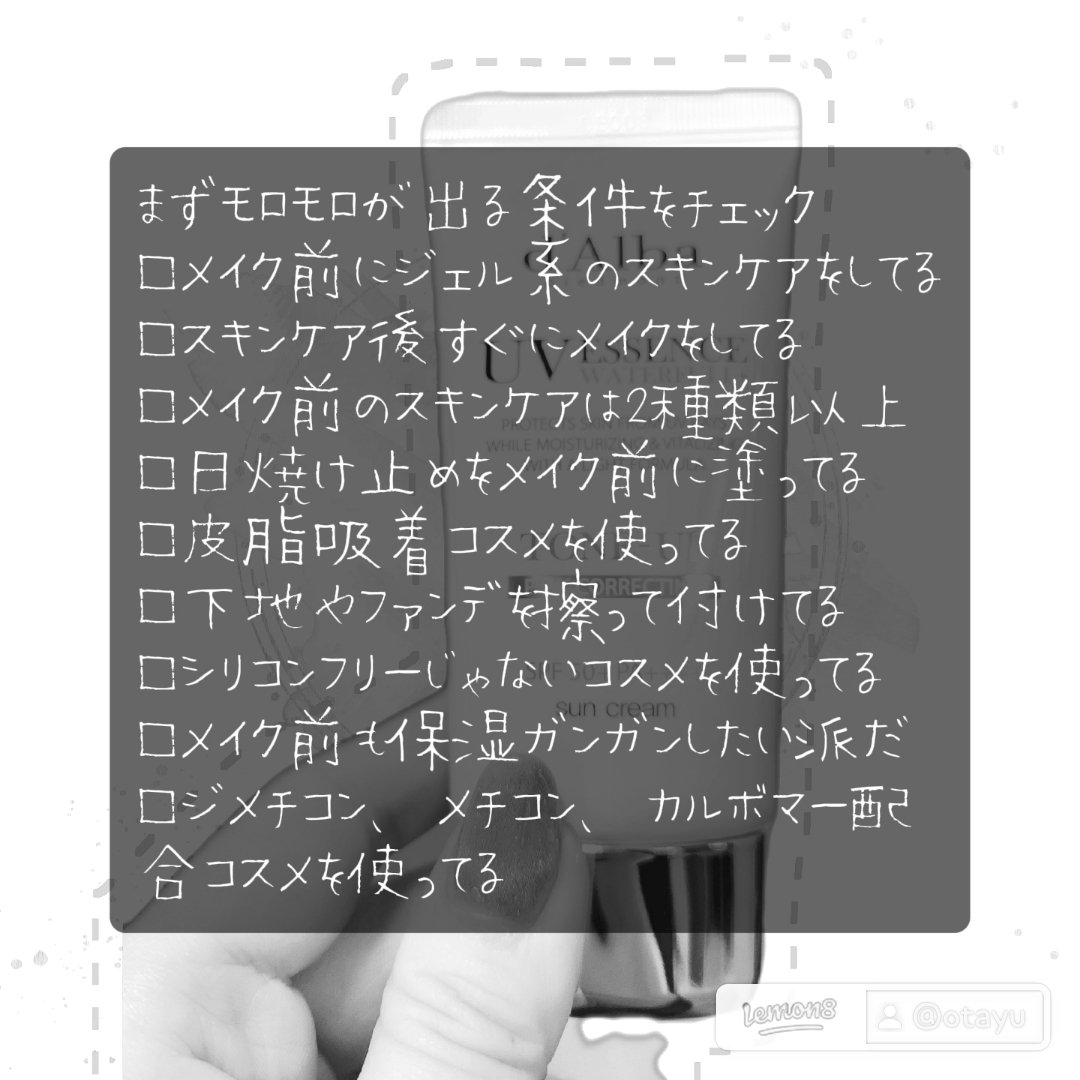 まずモロモロが出る条件をチェック
□メイク前にジェル系のスキンケアをしてる
□スキンケア後すぐにメイクをしてる
□メイク前のスキンケアは2種類以上
□日焼け止めをメイク前に塗ってる
□皮脂吸着コスメを使ってる
□下地やファンデを擦って付けてる
□シリコンフリーじゃないコスメを使ってる
□メイク前も保湿ガンガンしたい派だ
□ジメチコン、メチコン、カルボマー配
合コスメを使ってる
d'Alba
UV ESSENCE
WATERFULL
PROTECTS SKIN FROM UV RAYS
WHILE MOISTURIZING & VITALIZING
TONE-UP
CORRECTING
sun cream
lemon8 @otayu